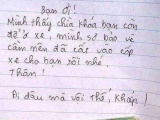 Bạn ơi!
Mình thấy chìa khóa bạn còn
để ở xe, mình sợ bảo vệ
cầm nên đã cất vào cốp
xe cho bạn rồi nhé.
Thân!
Đi đâu mà vội thế, Kháp!